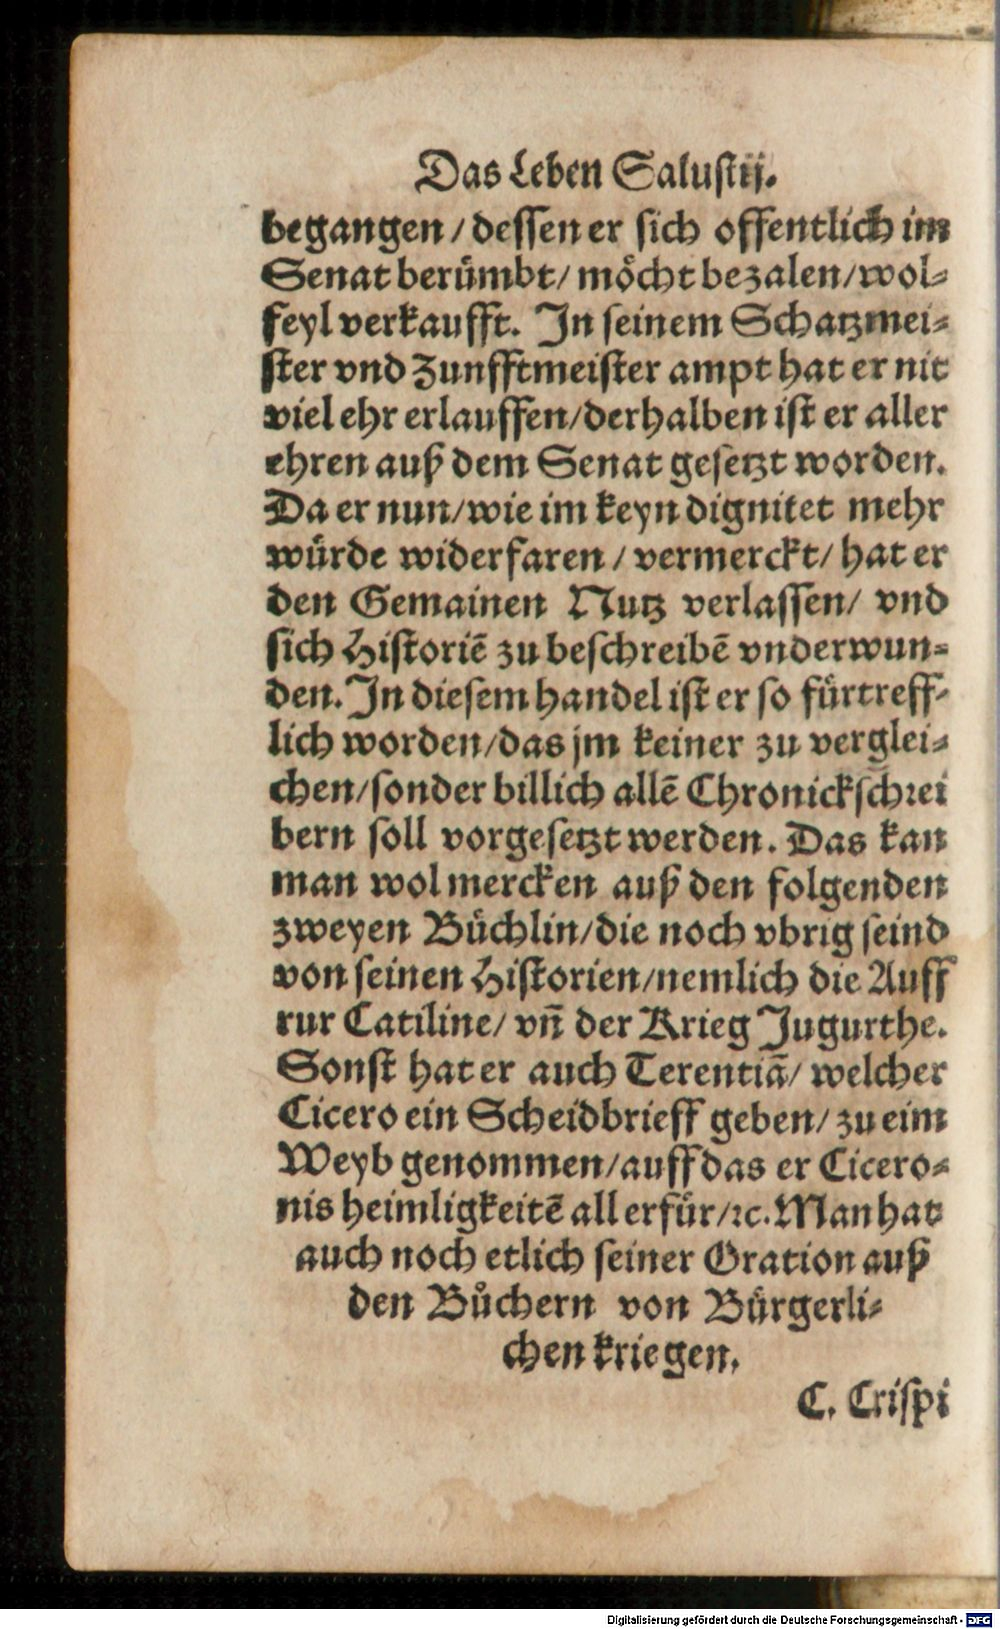 Das Leben Salustij.
begangen / dessen er sich offentlich im
Senat berümbt / möcht bezalen / wol⸗
feyl verkaufft. In seinem Schatzmei⸗
ster vnd Zunfftmeister ampt hat er nit
viel ehr erlauffen / derhalben ist er aller
ehren auß dem Senat gesetzt worden.
Da er nun / wie im keyn dignitet mehr
würde widerfaren / vermerckt / hat er
den Gemainen Nutz verlassen / vnd
sich Historiẽ zu beschreibẽ vnderwun⸗
den. In diesem handel ist er so fürtreff⸗
lich worden / das jm keiner zu verglei⸗
chen / sonder billich allẽ Chronickschrei
bern soll vorgesetzt werden. Das kan
man wol mercken auß den folgenden
zweyen Büchlin / die noch vbrig seind
von seinen Historien / nemlich die Auff
rur Catiline / vñ der Krieg Jugurthe.
Sonst hat er auch Terentiã / welcher
Cicero ein Scheidbrieff geben / zu eim
Weyb genommen / auff das er Cicero⸗
nis heimligkeitẽ all erfür / ꝛc. Man hat
auch noch etlich seiner Oration auß
den Bůchern von Bürgerli⸗
chen kriegen.
C. Crispi
Digitalisierung gefördert durch die Deutsche Forschungsgemeinschaft - DFG